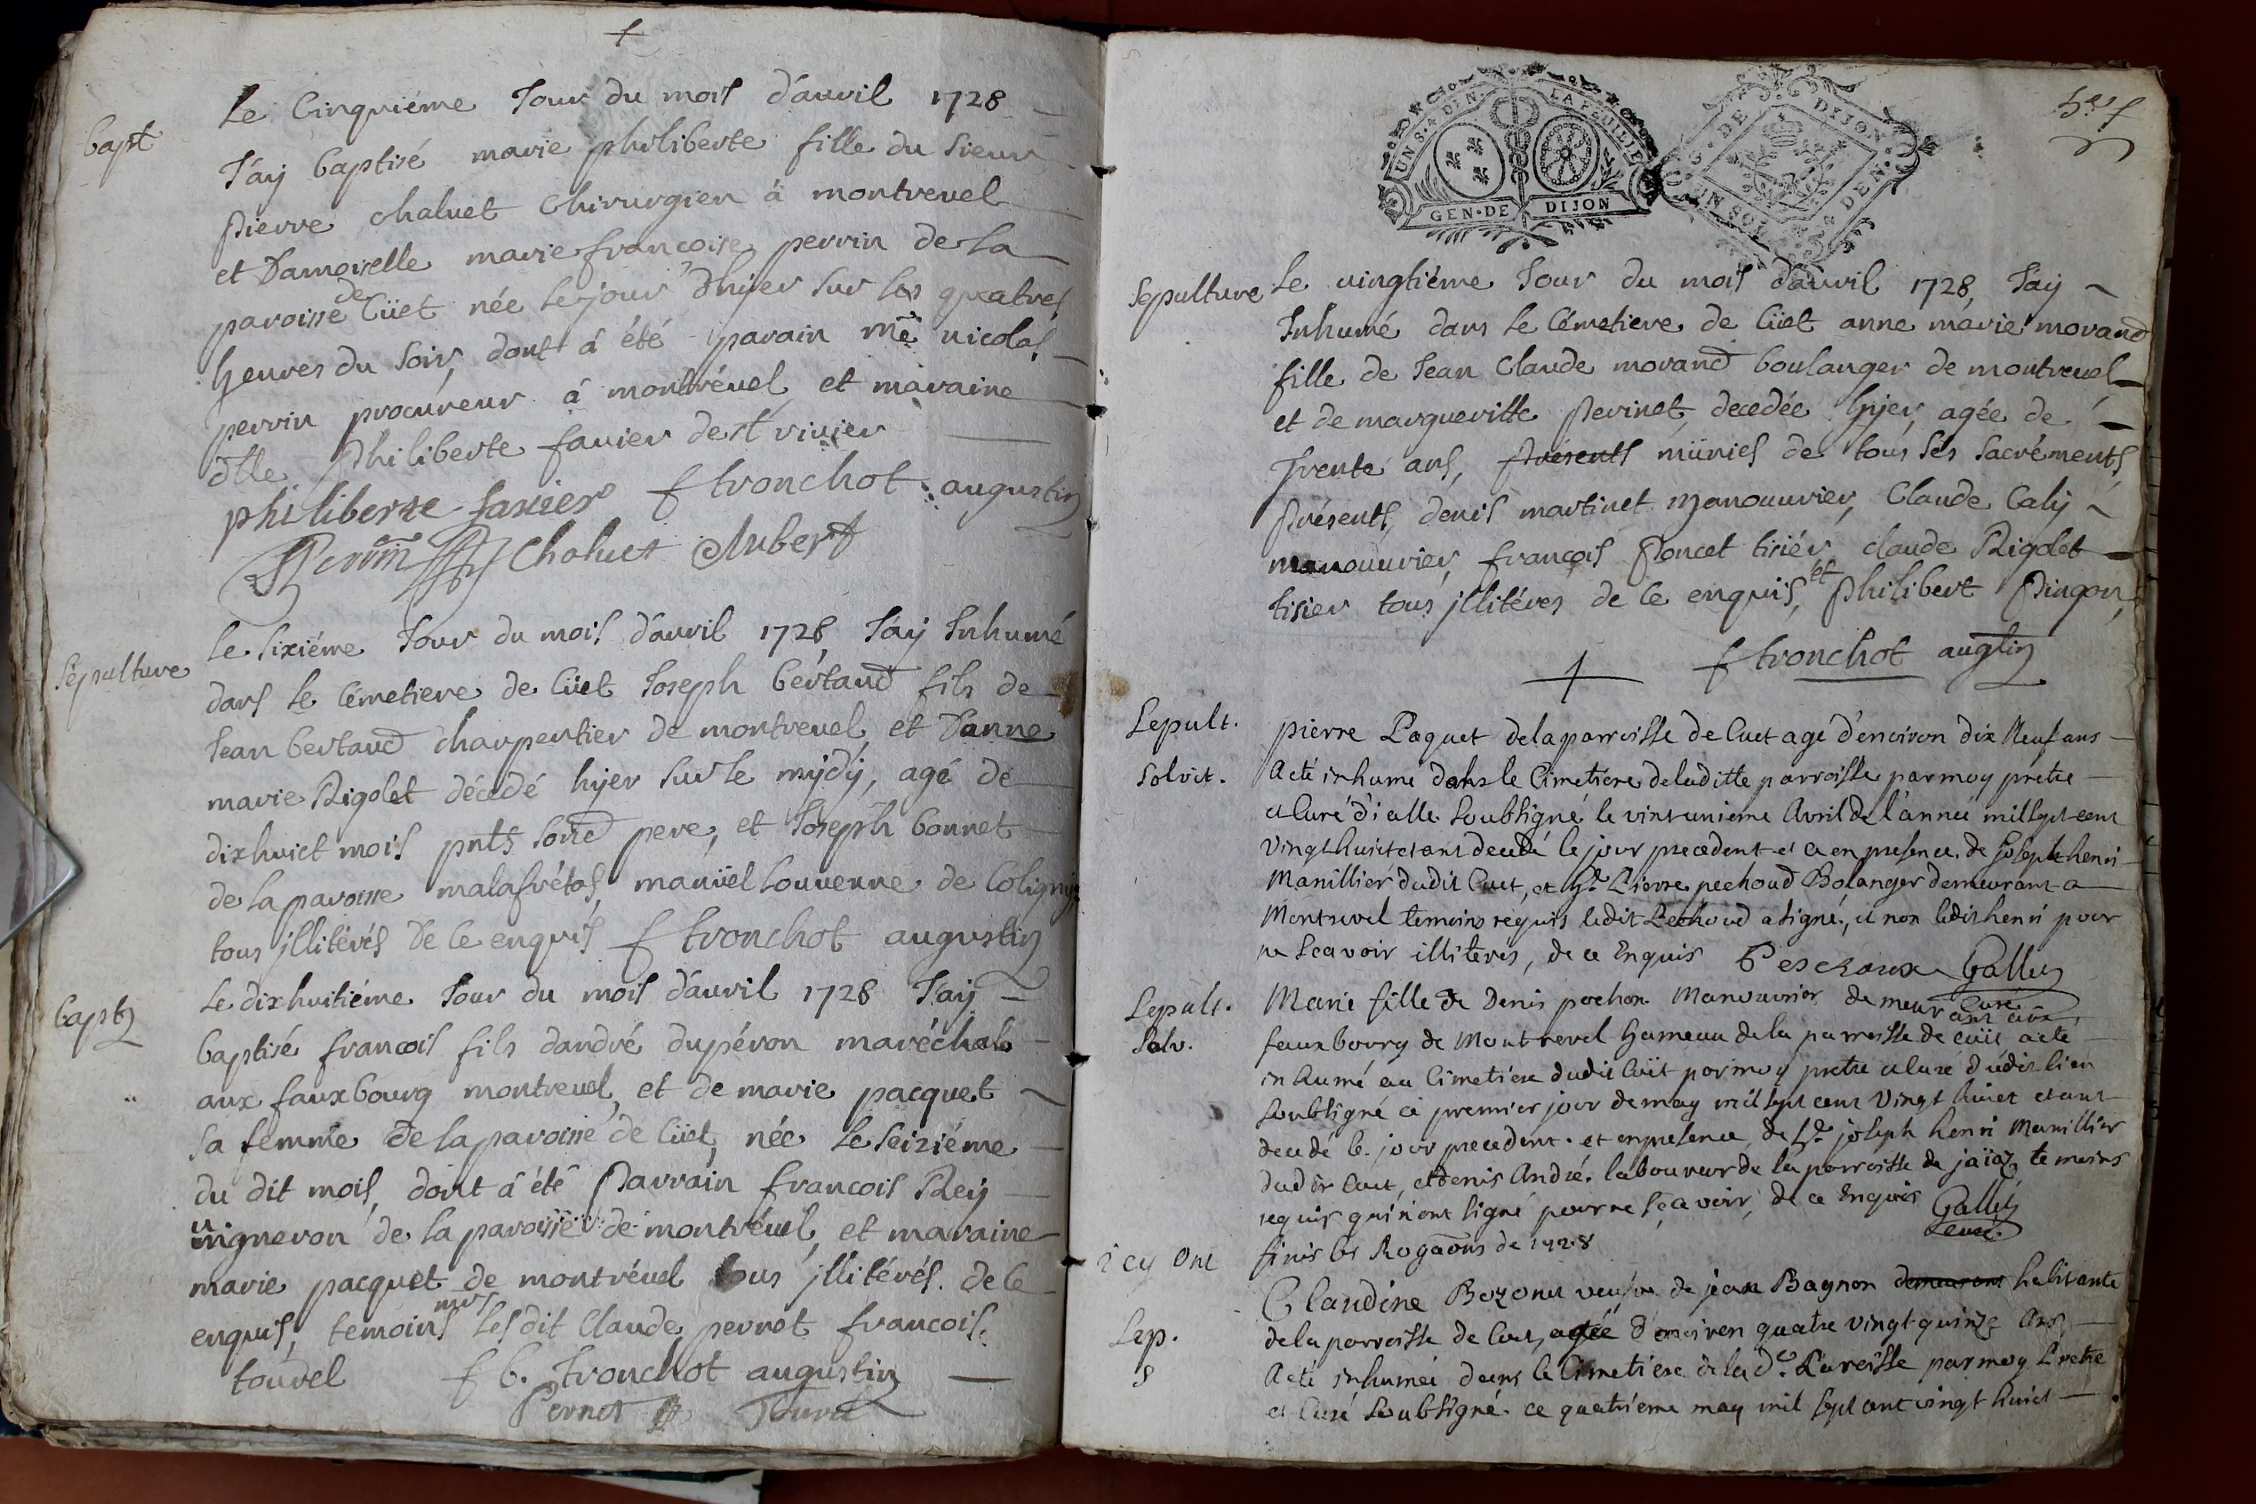 Bapt
Le Cinquiéme Jour du mois d'auril 1728
J'aÿ baptisé marie philiberte fille du Sieur
Pierre chaluet Chirurgien à montreuel
et Damoiselle marie francoise perrin de la
de
paroisse Cüet née le jour d'hÿer sur les quatres
heures du Soir, dont à été parain me nicolas
perrin procureur à montréuel et maraine
dlle Philiberte fauier de st viuier
philiberte favier f tronchot augustin
Perrin Chaluet Aubert
Sépulture
Le Sixiéme Jour du mois d'auril 1728 J'aÿ Inhumé
dans le Cémetiere de Cüet Joseph bértaud fils de
Jean bertaud charpentier de montreuel et D'anne
marie Rigolet décédé hÿer sur le mÿdÿ, agé de
dixhuict mois pnts sond pere, et Joseph bonnet
de la paroisse malafrétas, manüel Louuenne de Coligny
tous jllitérés de ce enquis f tronchot augustin
bapt
Le dixhuitiéme Jour du mois d'auril 1728 J'aÿ
baptisé francois fils dandré dupéron maréchal
aux fauxbourg montreuel, et de marie pacquet
sa femme de la paroisse de Cüet, née le Seiziéme
du dit mois, dont à été Parrain francois Reÿ
uigneron de la paroisse de montréuel, et maraine
marie pacquet de montréuel tous jllitérés de ce
enquis, temoins les dit Claude pernet francois
tourel f b. tronchot augustin
Pernet Tourel
UN S. 4 DEN. LA FEUILLE
GEN · DE DIJON
G. DE DIJON
UN SOL 4 DEN.
Sepulture
Le uingtiéme Jour du mois d'auril 1728, J'aÿ
Inhumé dans le Cémetiere de Cüet anne marie morand
fille de Jean Claude morand boulanger de montreuel
et de margueritte Perinet decedée hÿer, agée de
Trente ans, Présents münies de tous sés Sacréments
Présents, denis martinet manouurier, Claude Calÿ
manouurier, francois Poncet tisiér claude Rigolet
et
tisier tous jllitérés de ce enquis, Philibert Pingon
f tronchot augtin
Sepult.
Solvit.
pierre Paquet de la parroisse de Cuet agé d'environ dix Neuf ans
a eté inhumé dans le Cimetiere de laditte parroisse par moy pretre
et curé d'icelle Soubsigné le vint unieme Avril de l'année mil sept cent
vingt huict etant decedé le jour precedent et ce en presence de Joseph henri
Manillier dudit Cuet, et Sr Pierre pechoud Bolanger demeurant a
Montrevel temoins requis ledit Pechoud a signé, et non ledit henri pour
ne Scavoir illiteres, de ce Enquis Pesczoux Galluz
Curé
Sepult.
Solv.
Marie fille de Denis pochon Manouvrier demeurant au
fauxbourg de Montrevel hameau de la parroisse de Cuit a eté
inhumé au Cimetiere dudit Cuit par moy pretre et curé dudit lieu
Soubsigné ce premier jour de may mil sept cent vingt huict etant
decedé le jour precedent. et en presence de Sr joseph henri Manillier
dudit Cuet, et denis André laboureur de la parroisse de jaïaz temoins
requis qui n'ont signé pour ne sçavoir, de ce Enquis Galluz
Curé.
icy ont finis les Rogaons de 1728
Sep.
S
Claudine Bozonet veufve de jean Bagnon demeurant habitante
de la parroisse de Cuet, agée d'environ quatre vingt quinze Ans
a eté inhumée dans le Cimetiere de la de. Paroisse par moy Pretre
et Curé Soubsigné ce quatrieme may mil sept cent vingt huict